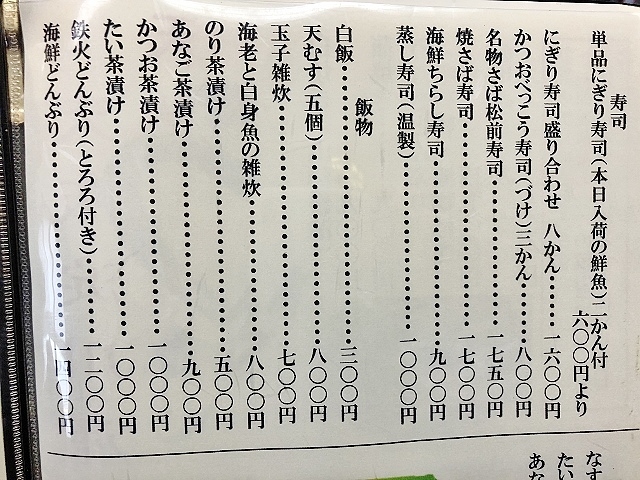 寿司
単品にぎり寿司(本日入荷の鮮魚)二かん付
六〇〇円より
にぎり寿司盛り合わせ 八かん……一六〇〇円
かつおべっこう寿司(づけ)三かん……八〇〇円
名物さば松前寿司……一七五〇円
焼さば寿司……一七〇〇円
海鮮ちらし寿司……九〇〇円
蒸し寿司(温製)……一〇〇〇円
飯物
白飯……三〇〇円
天むす(五個)……八〇〇円
玉子雑炊……七〇〇円
海老と白身魚の雑炊……八〇〇円
のり茶漬け……五〇〇円
あなご茶漬け……九〇〇円
かつお茶漬け……一〇〇〇円
たい茶漬け……一〇〇〇円
鉄火どんぶり(とろろ付き)……一二〇〇円
海鮮どんぶり……一四〇〇円
なす
たい
あな